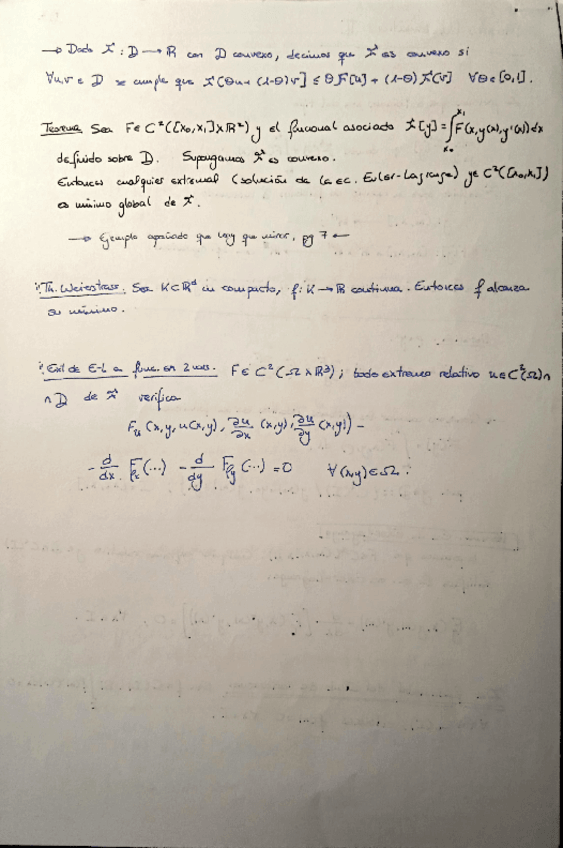 → Dado F : D → R con D convexo, decimos que F es convexo si
∀u,v ∈ D se cumple que F[θu + (1-θ)v] ≤ θF[u] + (1-θ)F[v] ∀θ∈[0,1].
Teorema Sea F∈C²([x₀,x₁]×R²) y el funcional asociado F[y]=∫_{x₀}^{x₁} F(x,y(x),y'(x))dx
definido sobre D. Supongamos F es convexo.
Entonces cualquier extremal (solución de la ec. Euler-Lagrange) y∈C²([x₀,x₁])
es mínimo global de F.
→ Ejemplo apartado que hay que mirar, pg 7 ←
Th. Weierstrass. Sea K⊂R^d un compacto, f: K→R continua. Entonces f alcanza
su mínimo.
de E-L a func. en 2 vars. F∈C²(Ω×R³); todo extremo relativo u∈C²(Ω)∩
∩ D de F verifica
F_u (x,y,u(x,y), ∂u/∂x (x,y), ∂u/∂y (x,y)) -
- d/dx F_{x}(...) - d/dy F_{y}(...) = 0 ∀(x,y)∈Ω.